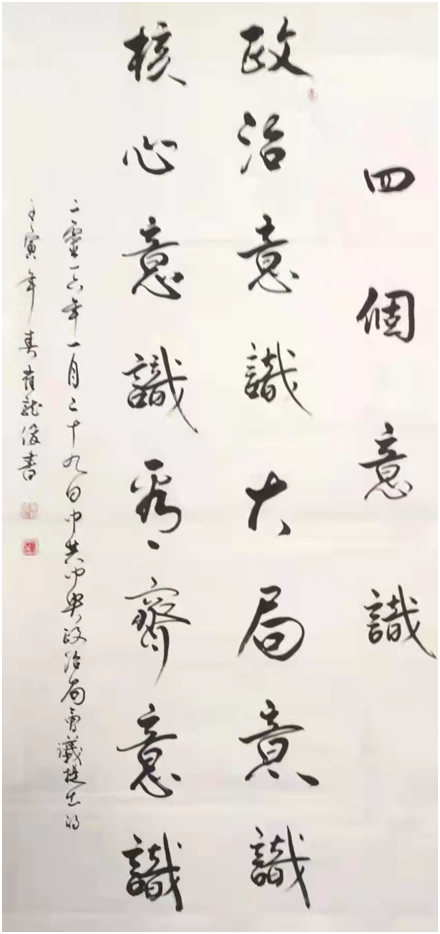 四個意識
政治意識大局意識
核心意識看齊意識
二零一六年一月二十九日中共中央政治局會議提出的
壬寅年春 龍俊書